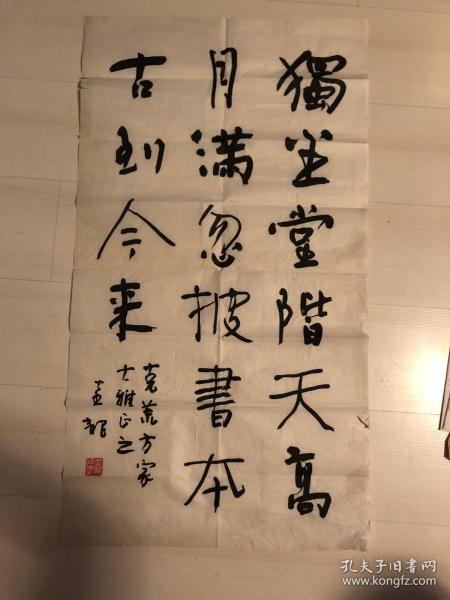 獨坐堂階天高
月满忽披書本
古到今来
克荒方家
大雅正之
孟龍
孔夫子旧书网
www.kongfz.com